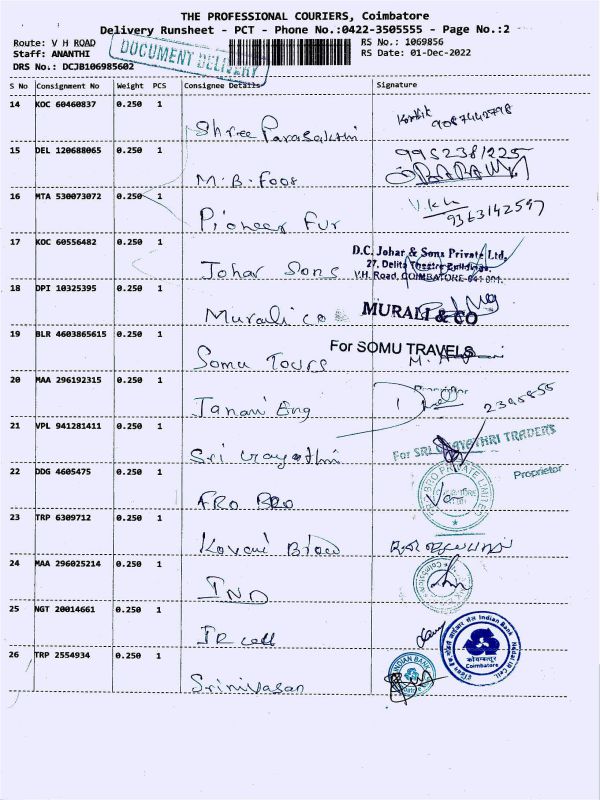 THE PROFESSIONAL COURIERS, Coimbatore
Delivery Runsheet - PCT - Phone No.:0422-3505555 - Page No.:2
Route: V H ROAD
RS No.: 1069856
Staff: ANANTHI
RS Date: 01-Dec-2022
DRS No.: DCJB106985602
DOCUMENT DELIVERY
S No Consignment No Weight PCS Consignee Details Signature
14 KOC 60460837 0.250 1
Shree Parasakthi
Karthik
9087442798
15 DEL 120688065 0.250 1
M.B. Foos
9952381225
16 MTA 530073072 0.250 1
Pioneer Fur
9363142597
17 KOC 60556482 0.250 1
Johar Sons
D.C. Johar & Sons Private Ltd,
27. Delite Theatre Buildings,
V.H. Road, COIMBATORE-641 001.
18 DPI 10325395 0.250 1
Murali co
MURALI & CO
19 BLR 4603865615 0.250 1
Somu Tours
For SOMU TRAVELS
20 MAA 296192315 0.250 1
Janani Eng
2395855
21 VPL 941281411 0.250 1
Sri Gayathri
For SRI GAYATHRI TRADERS
Proprietor
22 DDG 4605475 0.250 1
FRO BRO
FRO BRO PRIVATE LIMITED
23 TRP 6309712 0.250 1
Kovai
24 MAA 296025214 0.250 1
IND
25 NGT 20014661 0.250 1
IR cell
Indian Bank
कोयम्बत्तूर
Coimbatore
26 TRP 2554934 0.250 1
Srinivasan
INDIAN BANK